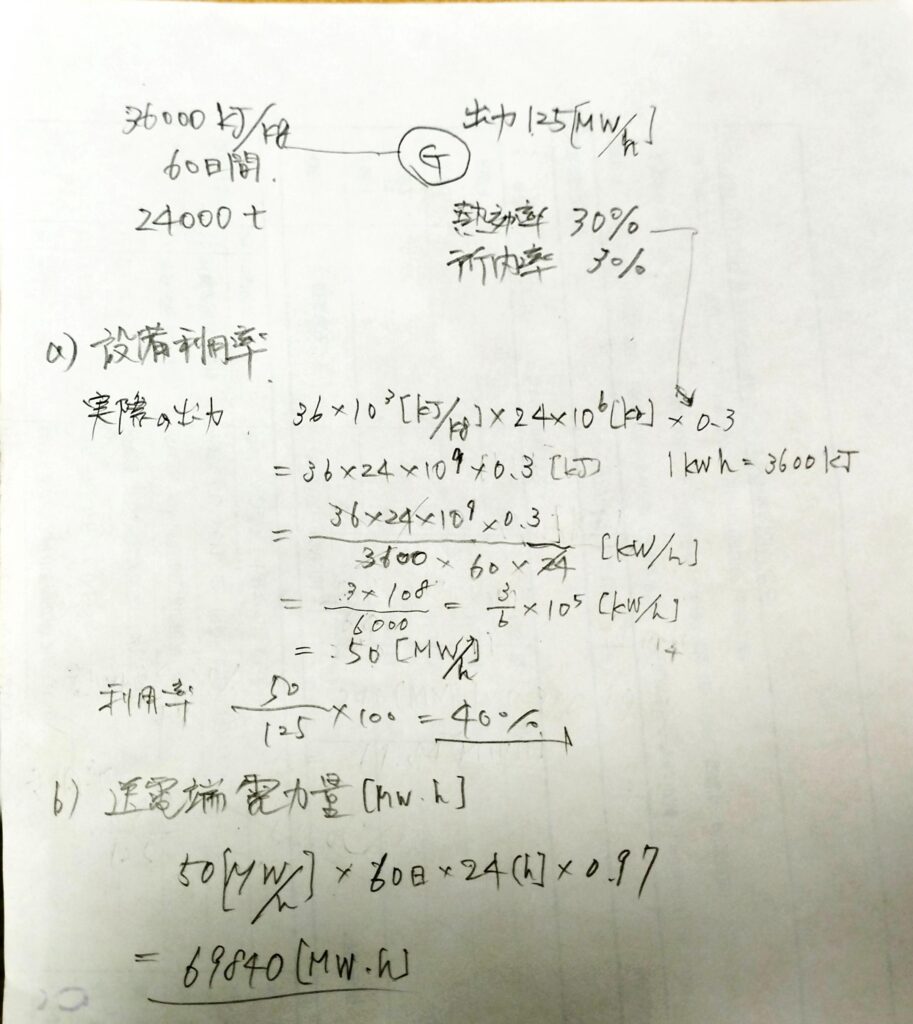 36000 kJ/kg
60日間.
24000 t
G
出力 125[MW/h]
熱効率 30%
所内率 3%
a) 設備利用率
実際の出力 36×10³[kJ/kg]×24×10⁶[kg]×0.3
= 36×24×10⁹×0.3 [kJ] 1kwh = 3600kJ
= 36×24×10⁹×0.3 / 3600×60×24 [kW/h]
= 3×10⁸/6000 = 3/6 ×10⁵ [kW/h]
= 50 [MW/h]
利用率 50/125 ×100 = 40%
b) 送電端電力量[Mw.h]
50[MW/h]×60日×24[h]×0.97
= 69840[MW.h]